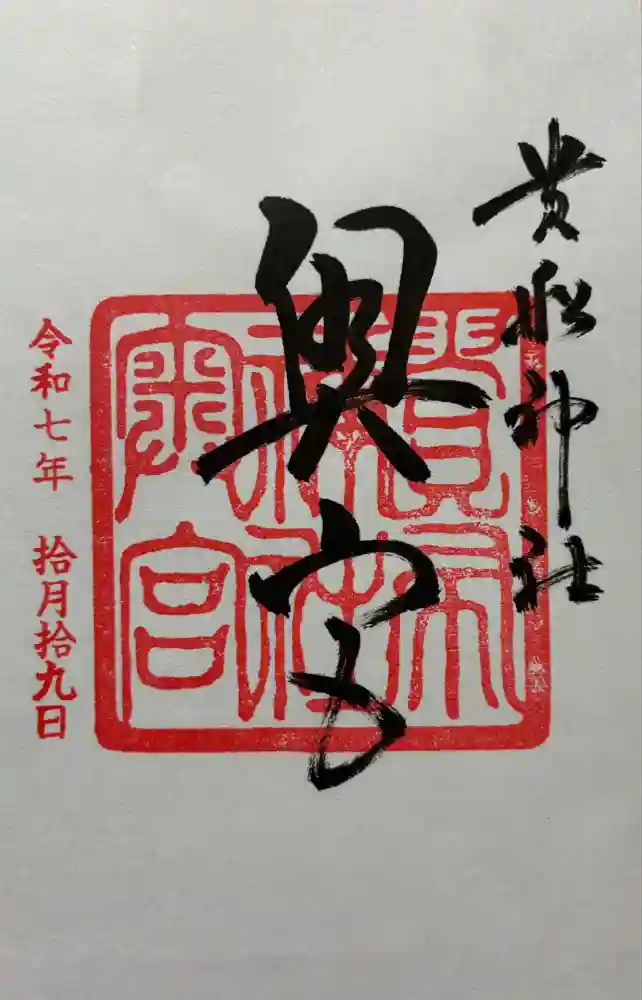 貴船神社
奥宮
貴布
禰社
奥宮
令和七年 拾月拾九日